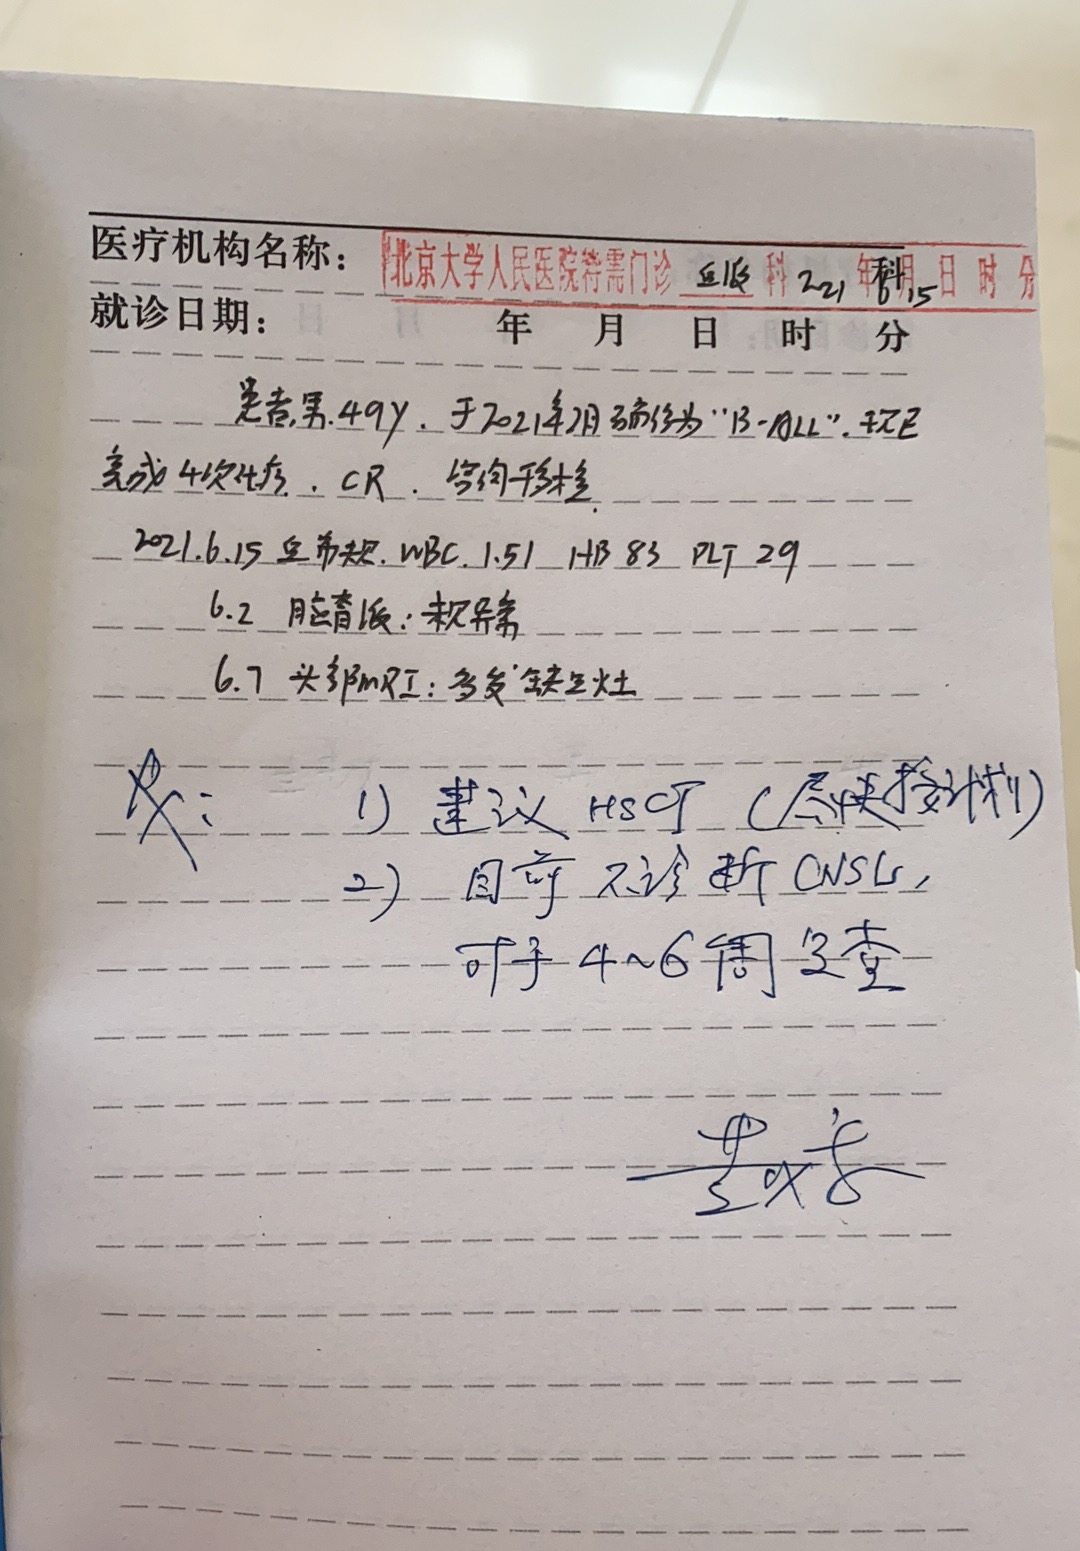 医疗机构名称： 科
北京大学人民医院特需门诊 血液 科 2021 年 6 月 15 日 时 分
就诊日期： 年 月 日 时 分
患者，男.49y.于2021年2月确诊为"B-ALL".现已
完成4次化疗.CR.咨询移植.
2021.6.15 血常规.WBC.1.51 HB 83 PLT 29
6.2 脑脊液：未见异常
6.7 头部MRI：多发缺血灶
1) 建议 HSCT (尽快 计划)
2) 目前不诊断CNSL,
可于4~6周复查